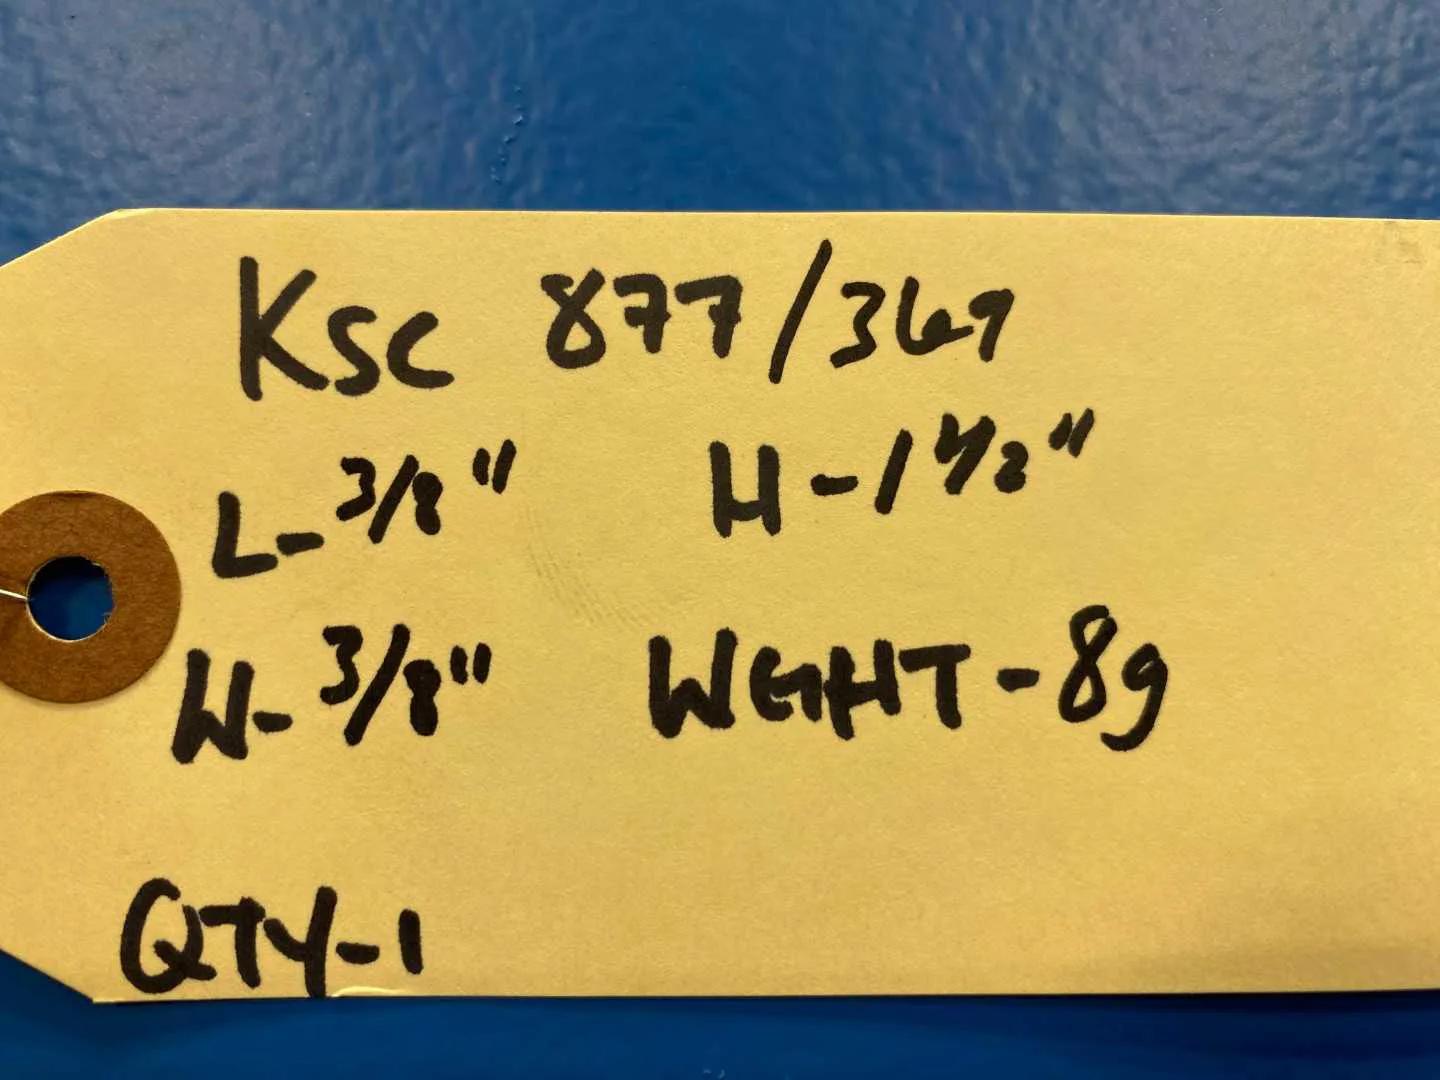 KSC 877/369
L-3/8" H-1 1/2"
W-3/8" WGHT-8g
QTY-1